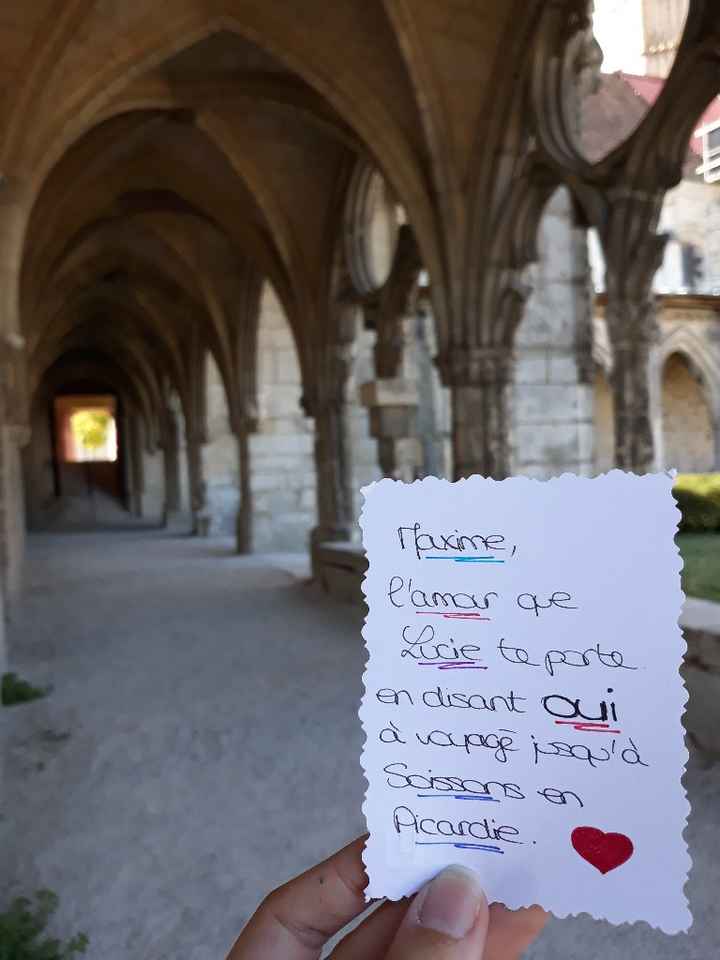 Maxime,
l'amour que
Lucie te porte
en disant oui
à voyagé jusqu'à
Soissons en
Picardie.